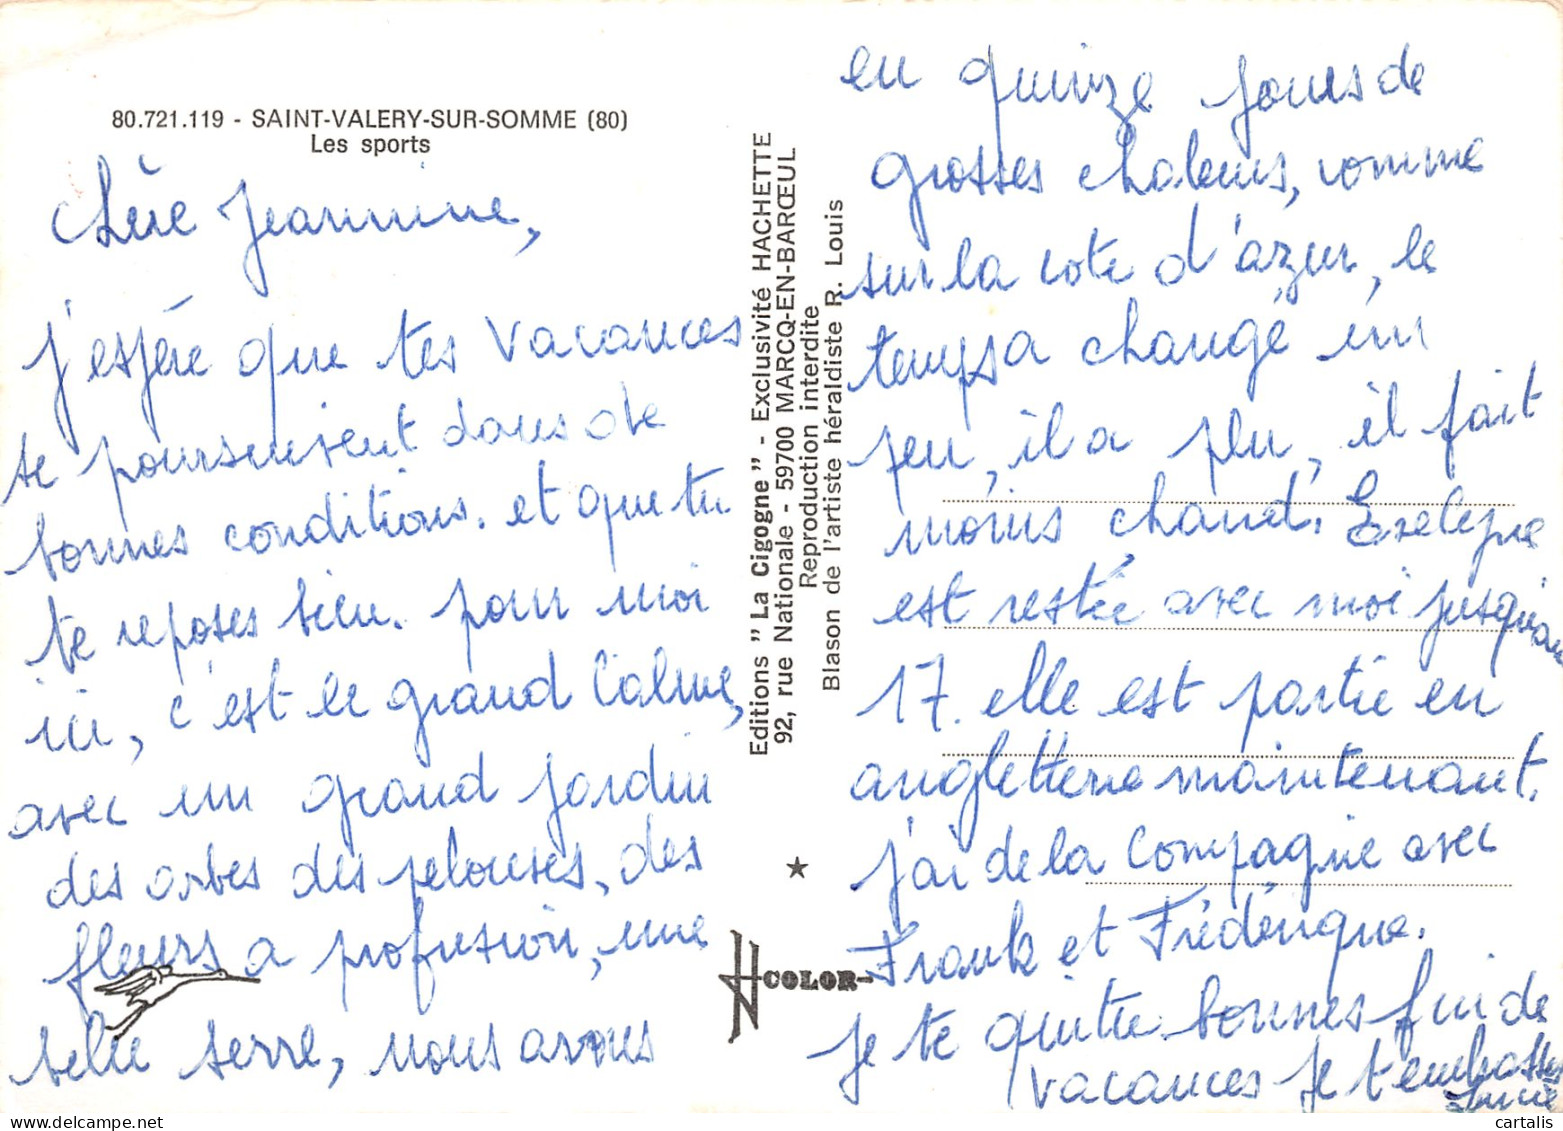 80.721.119 - SAINT-VALERY-SUR-SOMME (80)
Les sports
chère Jeannine,
j'espère que tes vacances
se poursuivent dans de
bonnes conditions. et que tu
te reposes bien. pour moi
ici, c'est le grand calme,
avec un grand jardin
des arbes des pelouses, des
fleurs a profusion, une
belle serre, nous avons
Editions " La Cigogne " - Exclusivité HACHETTE
92, rue Nationale - 59700 MARCQ-EN-BARŒUL
Reproduction interdite
Blason de l'artiste héraldiste R. Louis
COLOR
en quinze jours de
grosses chaleurs, comme
sur la cote d'azur, le
temps a changé un
peu, il a plu, il fait
moins chaud.
est restée avec moi jusqu'au
17. elle est partie en
angletterre maintenant.
j'ai de la compagnie avec
Frank et Frédérique.
je te quitte bonnes fin de
vacances je t'embrasse
Lucie
cartalis